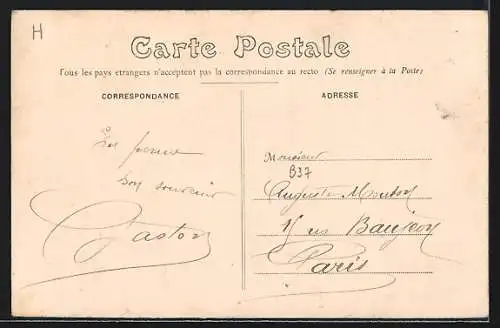 H
Carte Postale
Tous les pays étrangers n'acceptent pas la correspondance au recto (Se renseigner à la Poste)
CORRESPONDANCE
ADRESSE
bon souvenir
Gaston
Monsieur
B37
Auguste
Paris